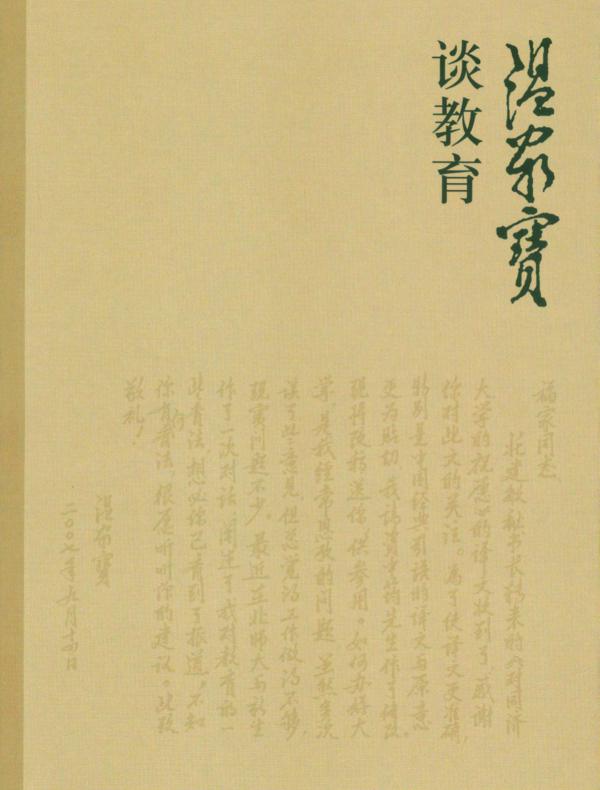 温家寶
谈教育
福家同志
托建敏秘书长转来的《对同济
大学的祝愿》的译文收到了，感谢
你对此文的关注。为了使译文更准确，
特别是中国经典引语的译文与原意
更为贴切，我请资中筠先生作了修改。
现将改稿送你，供参用。如何办好大
学，是我经常思考的问题，虽然多次
谈了些意见，但总觉得工作做得不够，
现实问题不少。最近在北师大与新生
作了一次对话，阐述了我对教育的一
些看法，想必你已看到了报道。不知
你有何看法，很愿听听你的建议。此致
敬礼！
温家寶
二〇〇七年九月十四日